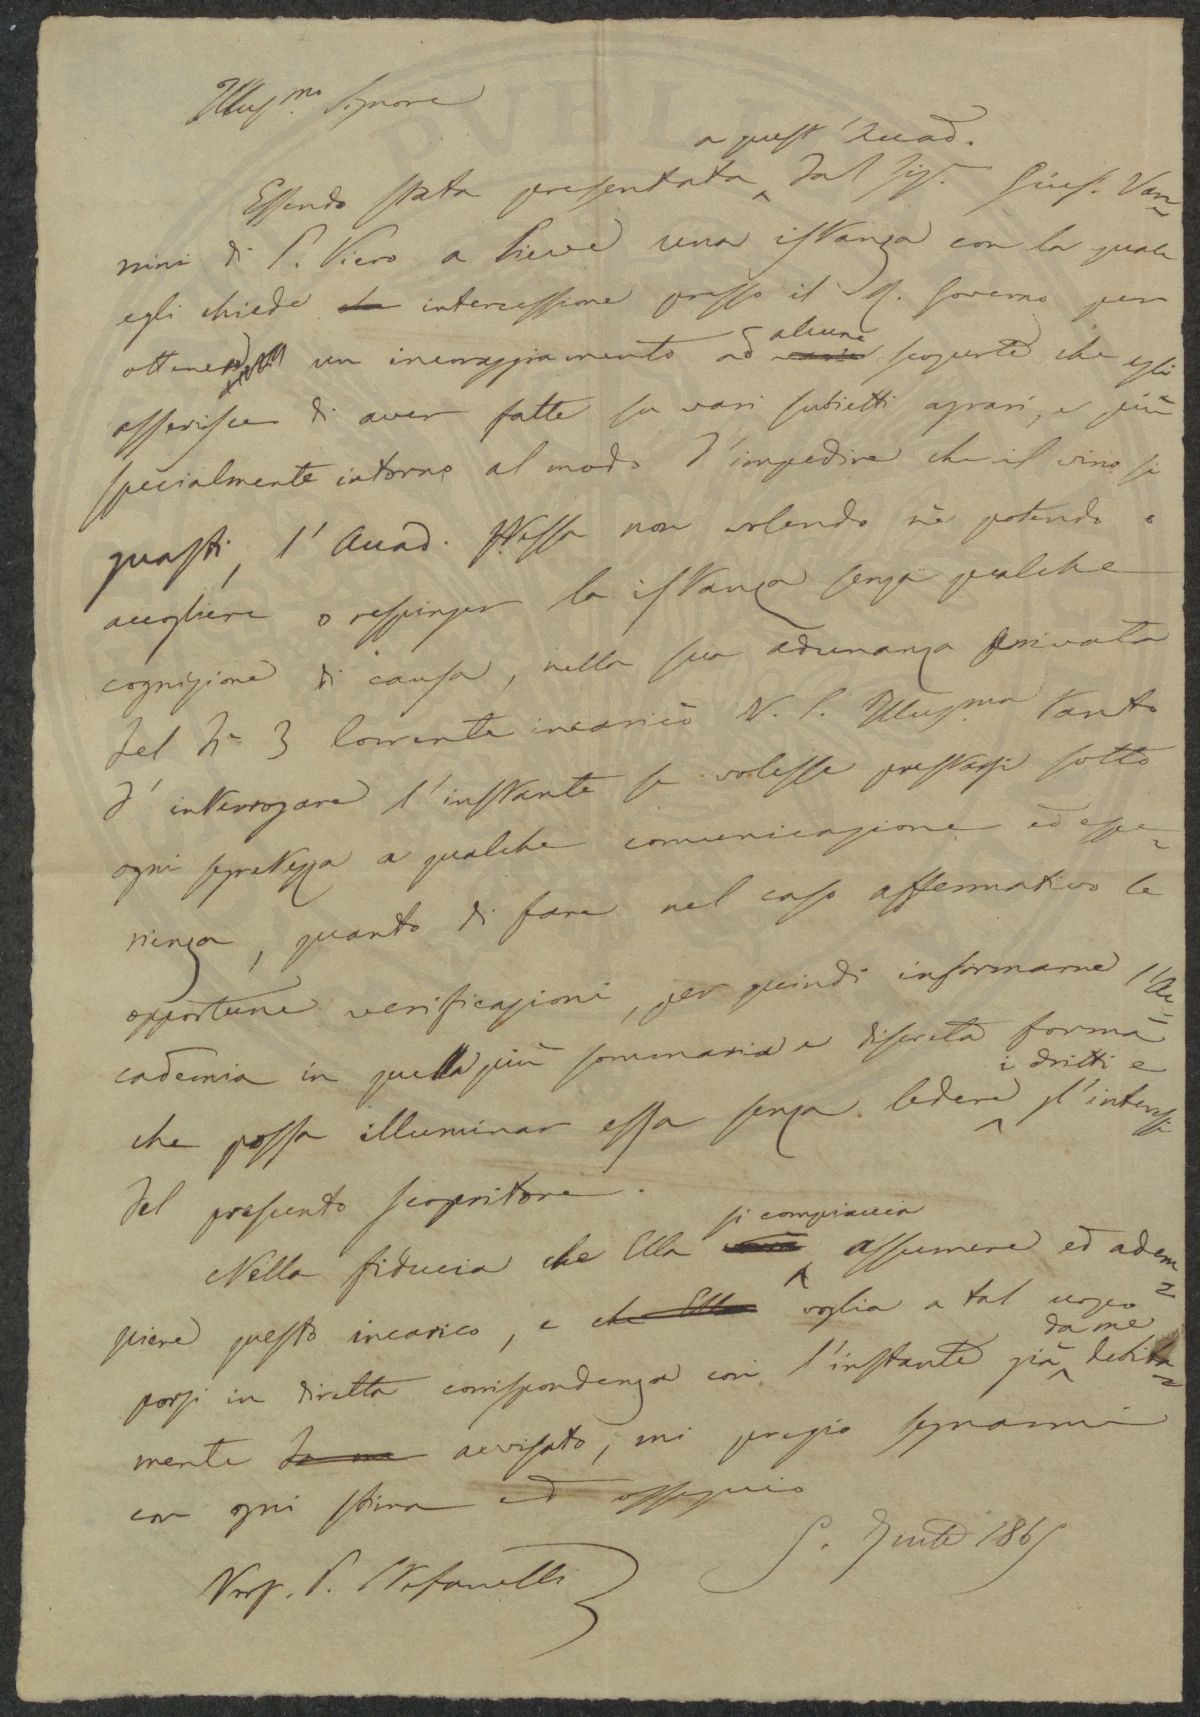 Illus.mo Signore
a quest'Accad.
Essendo stata presentata dal Sig. Gius. Van-
nini di S. Piero a Sieve una istanza con la quale
egli chiede intercessione presso il R. Governo per
ottenere un incoraggiamento ad alcune scoperte che egli
asserisce di aver fatte su vari subietti agrari, e più
specialmente intorno al modo d'impedire che il vino si
guasti, l'Accad. stessa non volendo nè potendo o
accogliere o respinger la istanza senza qualche
cognizione di causa, nella sua adunanza privata
del dì 3 corrente incaricò V. S. Illus.ma tanto
d'interrogare l'instante se volesse prestarsi sotto
ogni segretezza a qualche comunicazione ed espe-
rienza, quanto di fare nel caso affermativo le
opportune verificazioni, per quindi informarne l'Ac-
cademia in quella più sommaria e discreta forma
i dritti e
che possa illuminar essa senza ledere gl'interessi
del presunto scopritore.
si compiaccia
Nella fiducia che Ella assumere ed adem-
piere questo incarico, e che Ella voglia a tal uopo
da me
porsi in diretta corrispondenza con l'instante già debita-
mente da me avvisato, mi pregio segnarmi
con ogni stima ed ossequio
5. 1865
P. Stefanelli